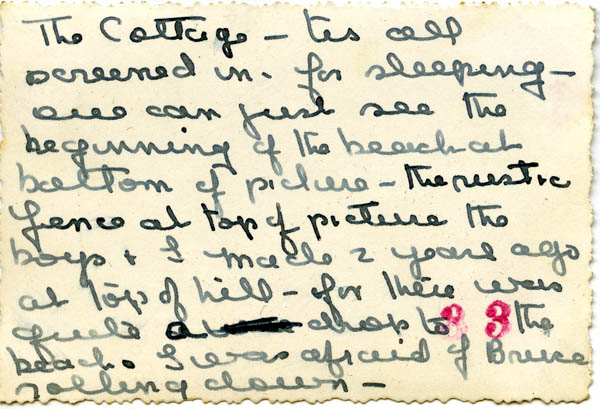 The Cottage – tis all
screened in. for sleeping –
one can just see the
beginning of the beach at
bottom of picture – the rustic
fence at top of picture the
boys & I made 2 years ago
at top of hill – for there was
quite a drop to 33 the
beach. I was afraid of Bruce
rolling down –